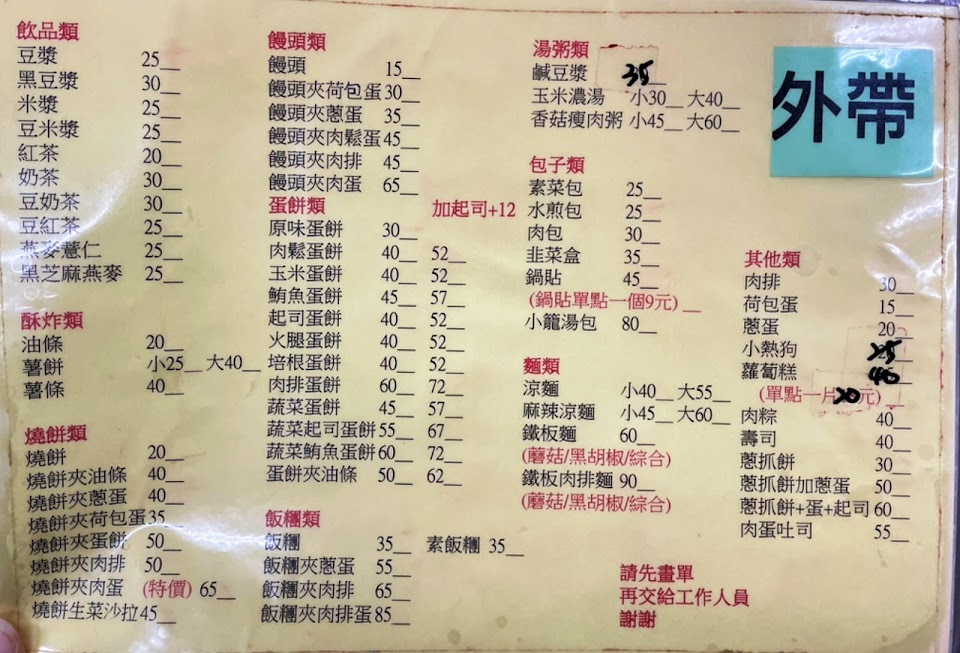 飲品類
豆漿 25__
黑豆漿 30__
米漿 25__
豆米漿 25__
紅茶 20__
奶茶 30__
豆奶茶 30__
豆紅茶 25__
燕麥薏仁 25__
黑芝麻燕麥 25__
酥炸類
油條 20__
薯餅 小25__ 大40__
薯條 40__
燒餅類
燒餅 20__
燒餅夾油條 40__
燒餅夾蔥蛋 40__
燒餅夾荷包蛋35__
燒餅夾蛋餅 50__
燒餅夾肉排 50__
燒餅夾肉蛋 (特價) 65__
燒餅生菜沙拉45__
饅頭類
饅頭 15__
饅頭夾荷包蛋30__
饅頭夾蔥蛋 35__
饅頭夾肉鬆蛋45__
饅頭夾肉排 45__
饅頭夾肉蛋 65__
蛋餅類 加起司+12
原味蛋餅 30__
肉鬆蛋餅 40__ 52__
玉米蛋餅 40__ 52__
鮪魚蛋餅 45__ 57__
起司蛋餅 40__ 52__
火腿蛋餅 40__ 52__
培根蛋餅 40__ 52__
肉排蛋餅 60__ 72__
蔬菜蛋餅 45__ 57__
蔬菜起司蛋餅55__ 67__
蔬菜鮪魚蛋餅60__ 72__
蛋餅夾油條 50__ 62__
飯糰類
飯糰 35__ 素飯糰 35__
飯糰夾蔥蛋 55__
飯糰夾肉排 65__
飯糰夾肉排蛋85__
湯粥類
鹹豆漿 35__
玉米濃湯 小30__ 大40__
香菇瘦肉粥 小45__ 大60__
包子類
素菜包 25__
水煎包 25__
肉包 30__
韭菜盒 35__
鍋貼 45__
(鍋貼單點一個9元)__
小籠湯包 80__
麵類
涼麵 小40__ 大55__
麻辣涼麵 小45__ 大60__
鐵板麵 60__
(蘑菇/黑胡椒/綜合)
鐵板肉排麵 90__
(蘑菇/黑胡椒/綜合)
外帶
其他類
肉排 30__
荷包蛋 15__
蔥蛋 20__
小熱狗 25__
蘿蔔糕 40__
(單點一片20元)__
肉粽 40__
壽司 40__
蔥抓餅 30__
蔥抓餅加蔥蛋 50__
蔥抓餅+蛋+起司60__
肉蛋吐司 55__
請先畫單
再交給工作人員
謝謝